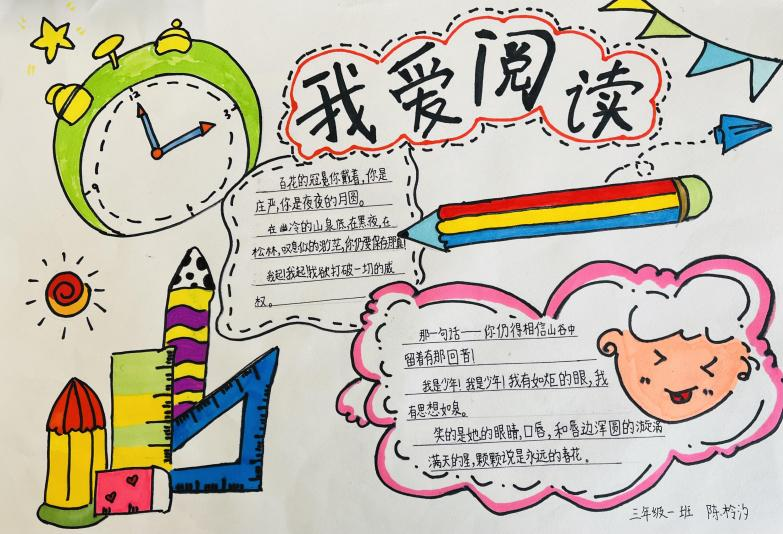 我爱阅读
百花的冠冕你戴着,你是
庄严,你是夜夜的月圆。
在幽冷的山泉底,在黑夜,在
松林,叹息似的渺茫,你仍要保存那真!
我起!我起!我欲打破一切的威
权。
那一句话——你仍得相信山谷中
留着有那回音!
我是少年!我是少年!我有如炬的眼,我
有思想如泉。
笑的是她的眼睛,口唇,和唇边浑圆的漩涡
满天的星,颗颗说是永远的春花。
三年级一班 陈柃汐